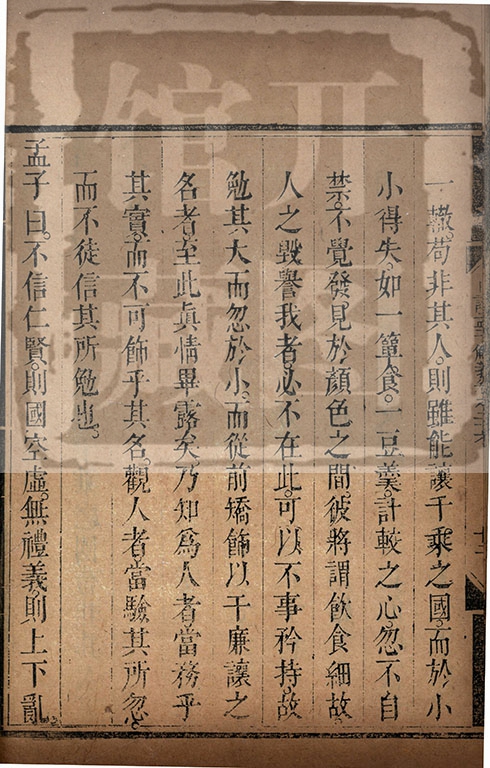 一轍苟非其人則雖能讓千乘之國而於小
小得失如一簞食一豆羹計較之心忽不自
禁不覺發見於顏色之間彼將謂飲食細故
人之毀譽我者必不在此可以不事矜持故
勉其大而忽於小而從前矯飾以干廉讓之
名者至此眞情畢露矣乃知爲人者當務乎
其實而不可飾乎其名觀人者當驗其所忽
而不徒信其所勉也
孟子曰不信仁賢則國空虛無禮義則上下亂